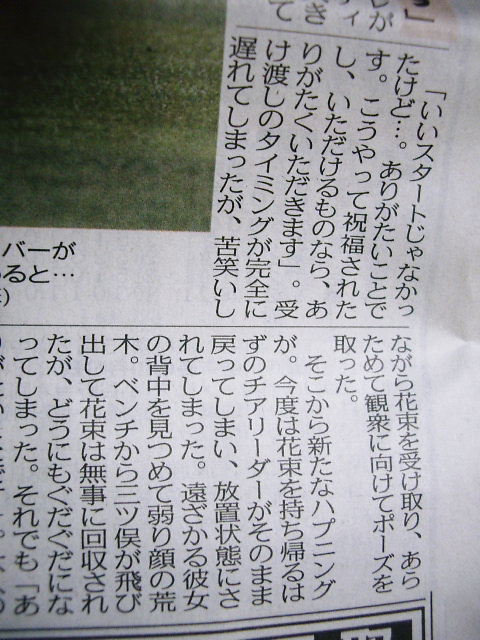 「いいスタートじゃなかっ
たけど…。ありがたいことで
す。こうやって祝福された
し、いただけるものなら、あ
りがたくいただきます」。受
け渡しのタイミングが完全に
遅れてしまったが、苦笑いし
ながら花束を受け取り、あら
ためて観衆に向けてポーズを
取った。
そこから新たなハプニング
が。今度は花束を持ち帰るは
ずのチアリーダーがそのまま
戻ってしまい、放置状態にさ
れてしまった。遠ざかる彼女
の背中を見つめて弱り顔の荒
木。ベンチから三ツ俣が飛び
出して花束は無事に回収され
たが、どうにもぐだぐだにな
ってしまった。それでも「あ
バーが
ると…